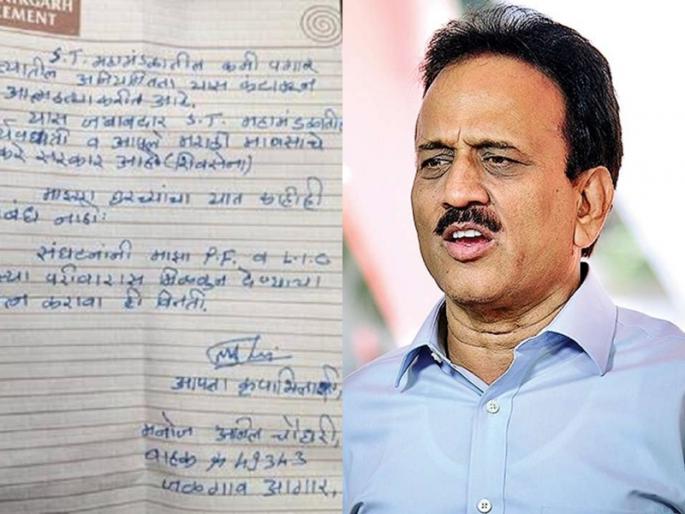 CEMENT
S.T. महामंडळातील कमी पगार
अनियमितता यास कंटाळून
आत्महत्या करीत आहे.
यास जबाबदार S.T. महामंडळातील
व आपले मराठी माणसाचे
करे सरकार आहे (शिवसेना)
माझ्या घरच्यांचा यात काहीही
बंध नाही.
संघटनांनी माझा P.F. व L.I.C
परीवारास मिळवून देण्याचा
त्न करावा ही विनंती.
आपला कृपाभिलाषी,
मनोज अनिल चौधरी,
वाहक क्र 49343
जळगाव आगार.